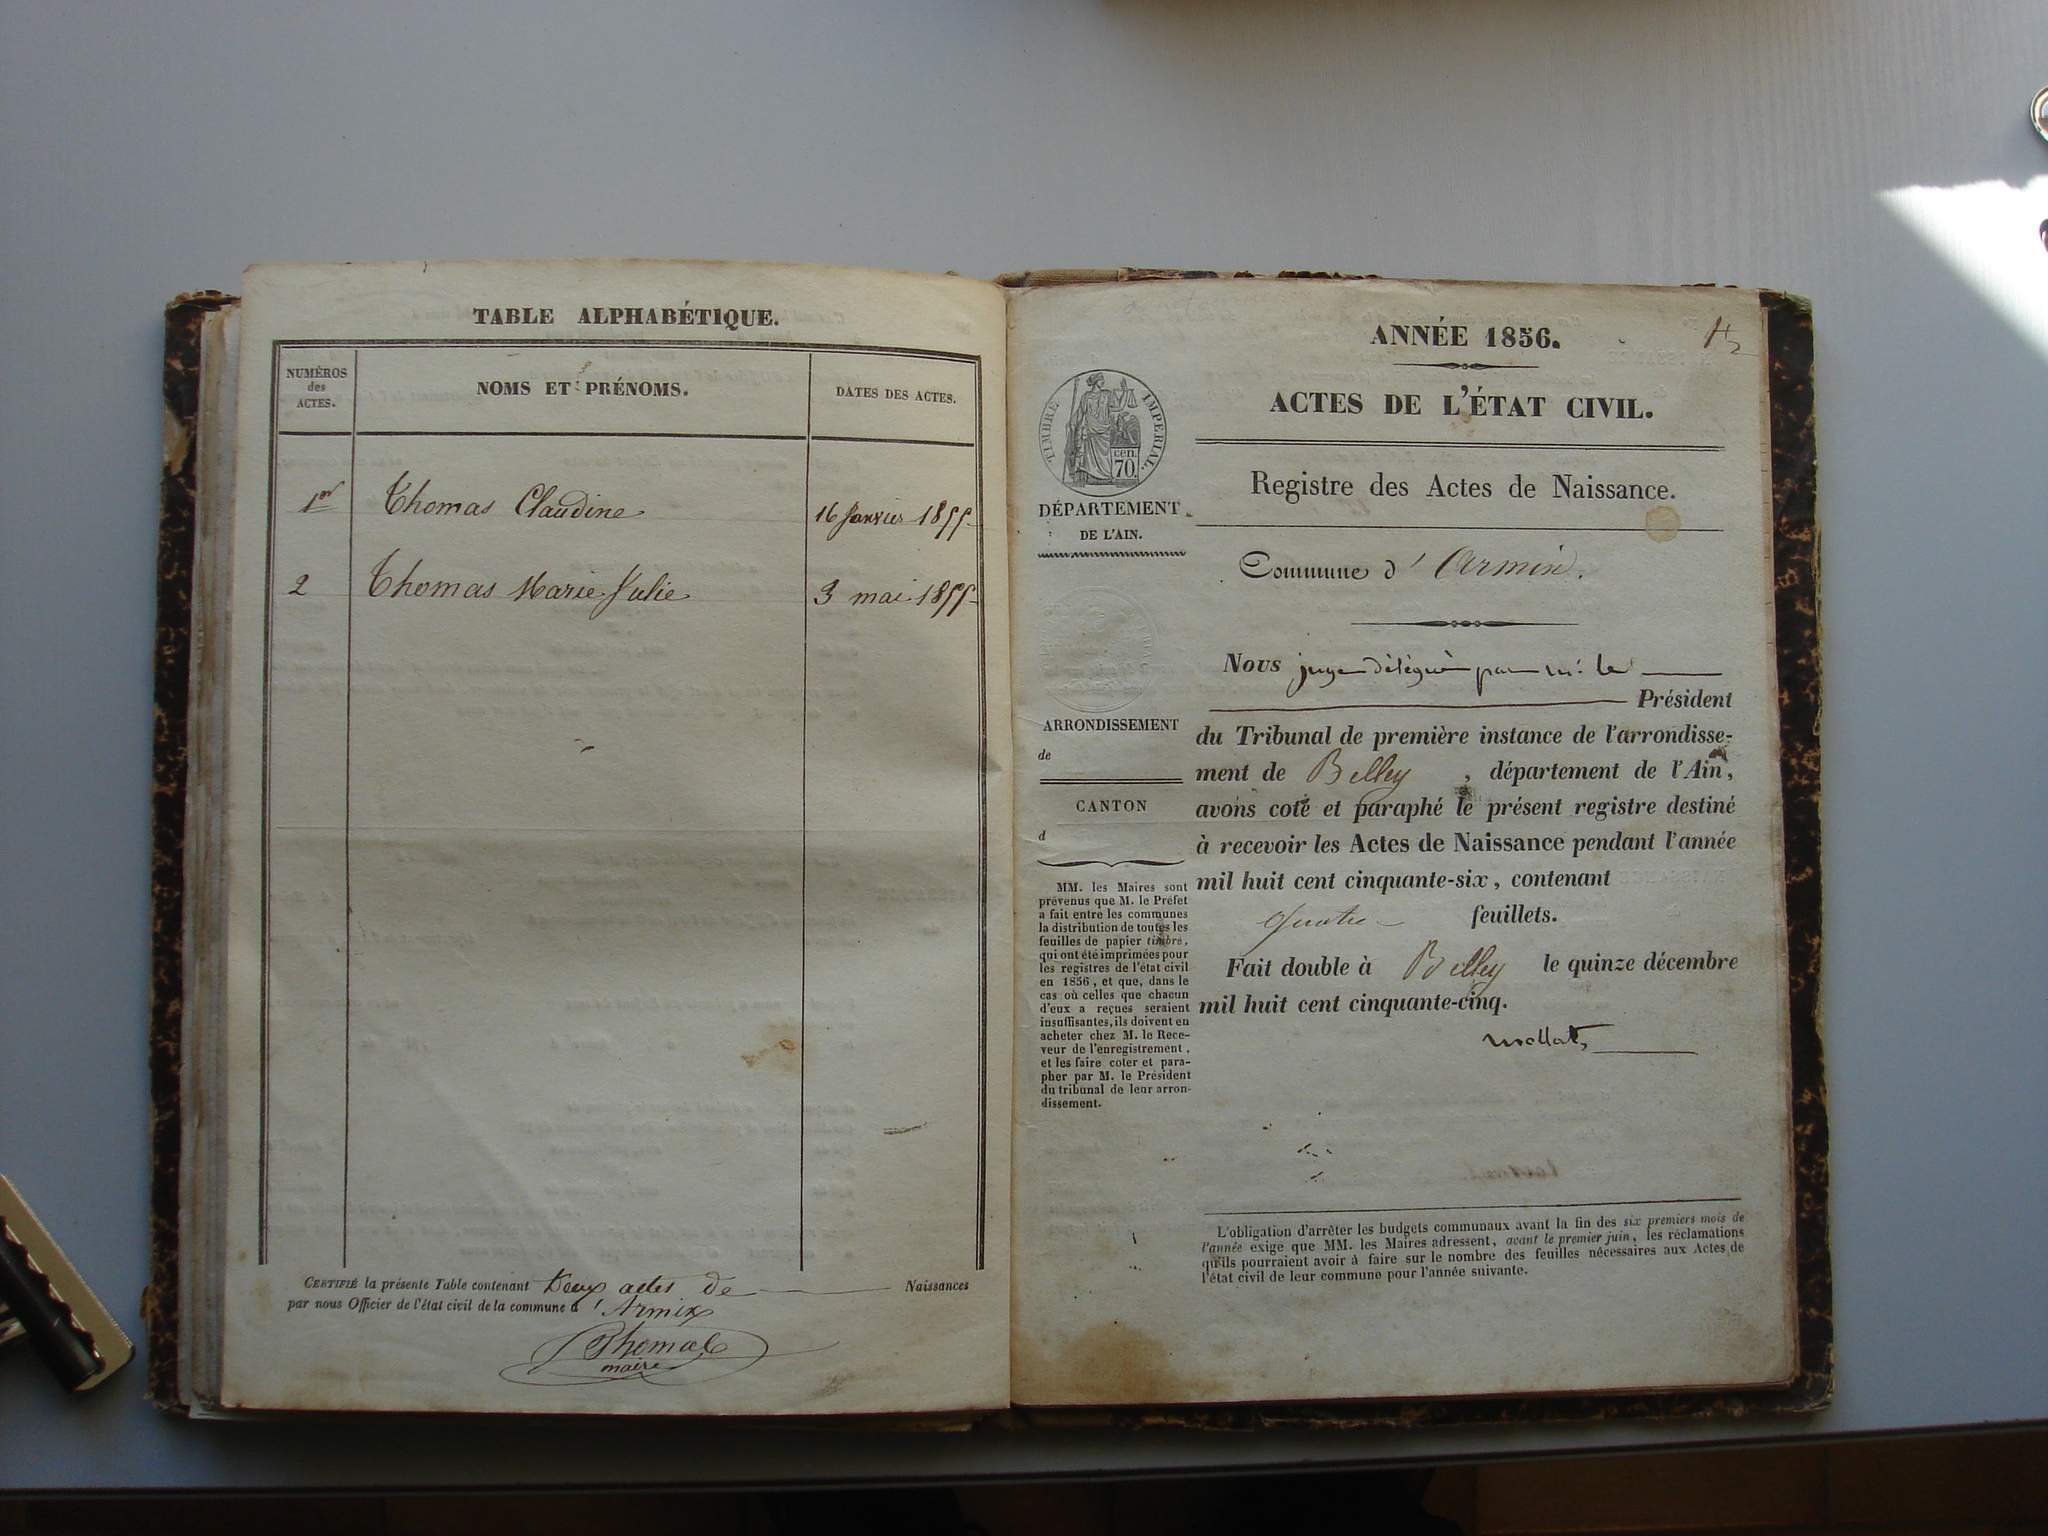 TABLE ALPHABÉTIQUE.
NUMÉROS
des
ACTES.
NOMS ET PRÉNOMS.
DATES DES ACTES.
1er Thomas Claudine 16 Janvier 1855
2 Thomas Marie Julie 3 mai 1855
CERTIFIÉ la présente Table contenant Deux actes de Naissances
par nous Officier de l'état civil de la commune d'Armix
Thomas
maire
ANNÉE 1856.
ACTES DE L'ÉTAT CIVIL.
TIMBRE IMPERIAL.
cen.
70.
DÉPARTEMENT
DE L'AIN.
Registre des Actes de Naissance.
Commune d'Armix.
ARRONDISSEMENT
de
CANTON
d
MM. les Maires sont
prévenus que M. le Préfet
a fait entre les communes
la distribution de toutes les
feuilles de papier timbré,
qui ont été imprimées pour
les registres de l'état civil
en 1856, et que, dans le
cas où celles que chacun
d'eux a reçues seraient
insuffisantes, ils doivent en
acheter chez M. le Rece-
veur de l'enregistrement,
et les faire coter et para-
pher par M. le Président
du tribunal de leur arron-
dissement.
Nous juge délégué par Mr. le
Président
du Tribunal de première instance de l'arrondisse-
ment de Belley, département de l'Ain,
avons coté et paraphé le présent registre destiné
à recevoir les Actes de Naissance pendant l'année
mil huit cent cinquante-six, contenant
quatre feuillets.
Fait double à Belley le quinze décembre
mil huit cent cinquante-cinq.
L'obligation d'arrêter les budgets communaux avant la fin des six premiers mois de
l'année exige que MM. les Maires adressent, avant le premier juin, les réclamations
qu'ils pourraient avoir à faire sur le nombre des feuilles nécessaires aux Actes de
l'état civil de leur commune pour l'année suivante.